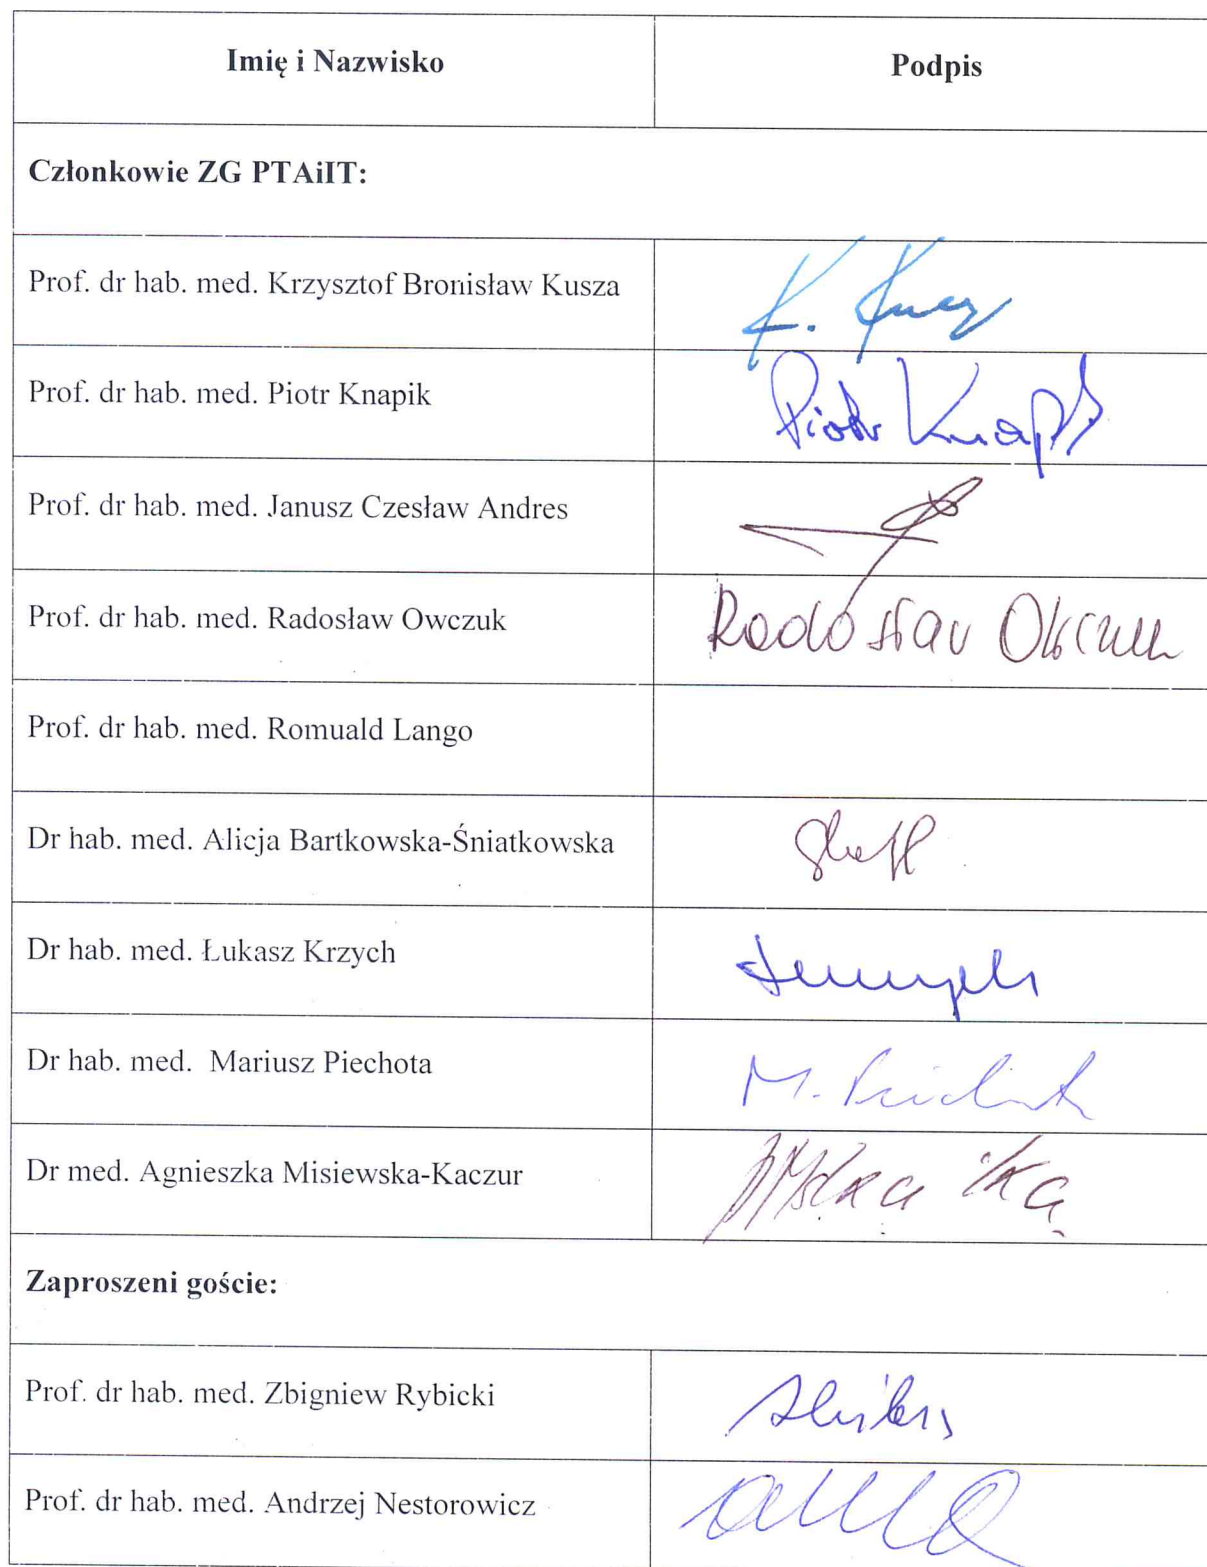 Imię i Nazwisko
Podpis
Członkowie ZG PTAiIT:
Prof. dr hab. med. Krzysztof Bronisław Kusza
K.
Prof. dr hab. med. Piotr Knapik
Piotr Knapik
Prof. dr hab. med. Janusz Czesław Andres
Prof. dr hab. med. Radosław Owczuk
Radosław Owczuk
Prof. dr hab. med. Romuald Lango
Dr hab. med. Alicja Bartkowska-Śniatkowska
Dr hab. med. Łukasz Krzych
Dr hab. med. Mariusz Piechota
M.
Dr med. Agnieszka Misiewska-Kaczur
Zaproszeni goście:
Prof. dr hab. med. Zbigniew Rybicki
Prof. dr hab. med. Andrzej Nestorowicz